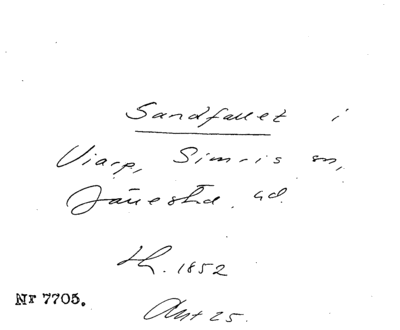 Sandfallet i
Viarp, Simris sn,
Järrestad hd.
H. 1852
Ant 25.
Nr 7705.